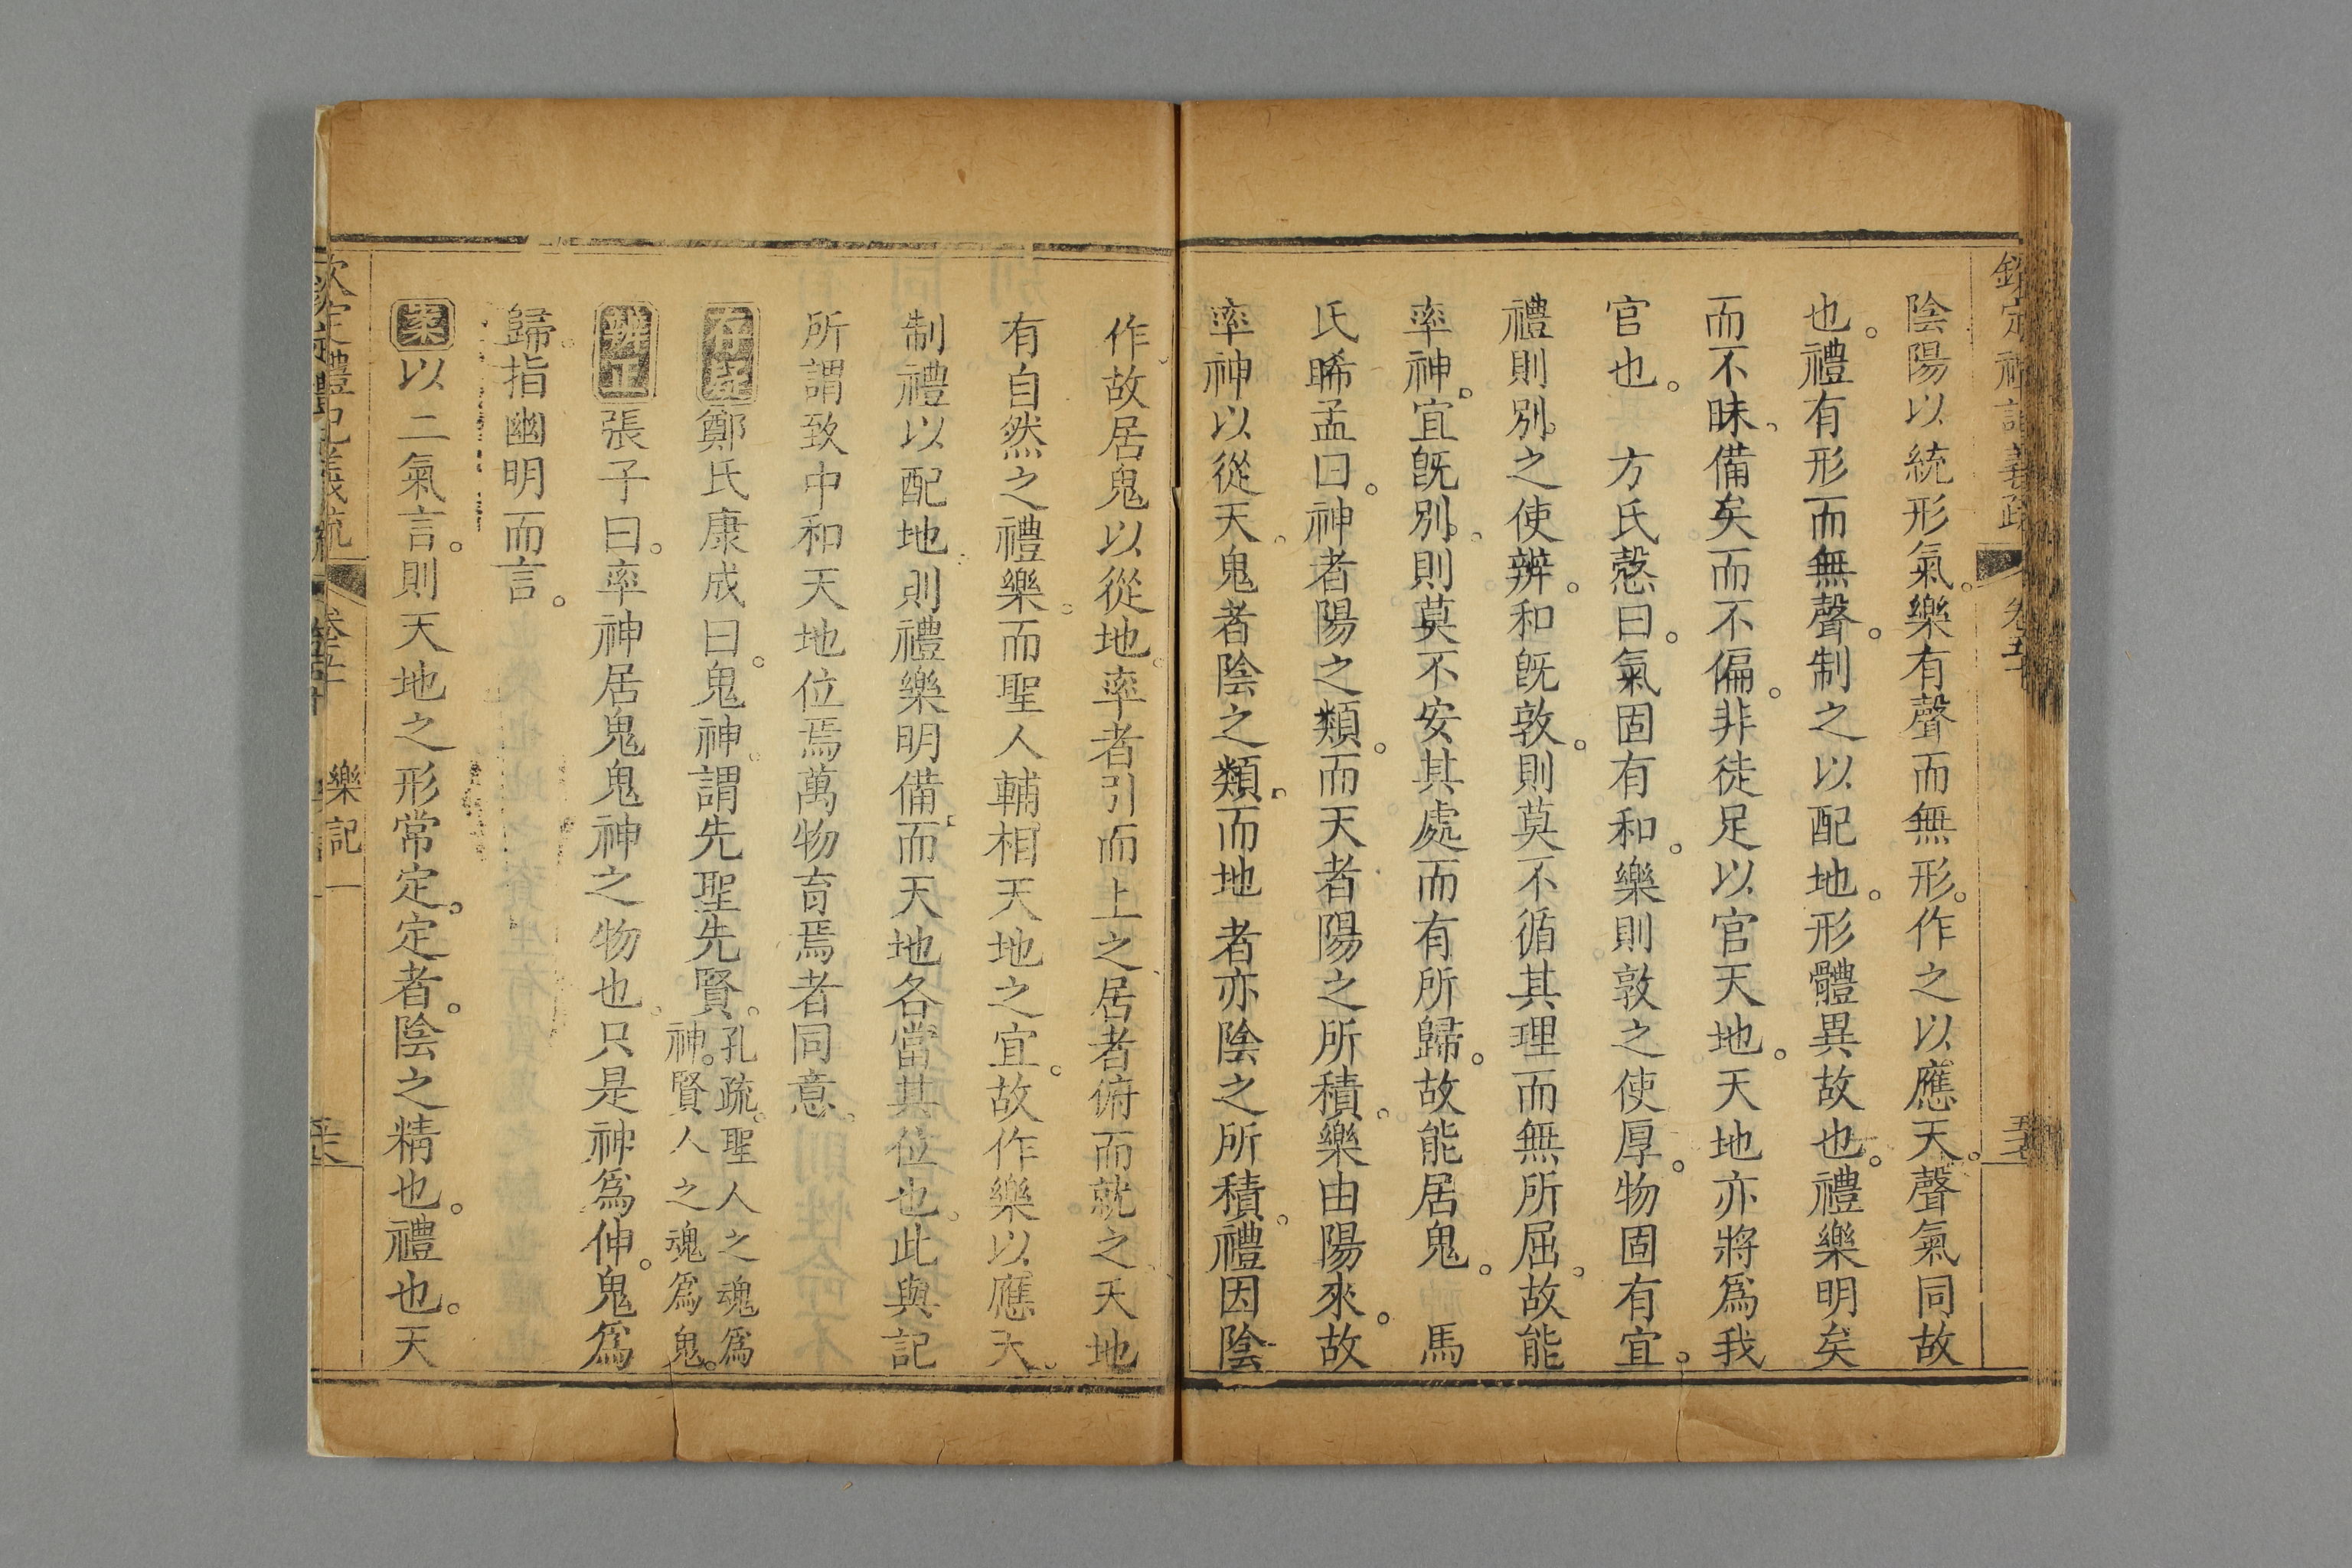 欽定禮記義疏 卷五十
陰陽以統形氣。樂有聲而無形。作之以應天。聲氣同故
也。禮有形而無聲。制之以配地。形體異故也。禮樂明矣
而不昧、備矣而不偏。非徒足以官天地。天地亦將爲我
官也。 方氏慤曰。氣固有和。樂則敦之使厚。物固有宜。
禮則別之使辨。和旣敦。則莫不循其理而無所屈。故能
率神。宜旣別。則莫不安其處而有所歸。故能居鬼。 馬
氏晞孟曰。神者陽之類。而天者陽之所積。樂由陽來。故
率神以從天。鬼者陰之類。而地者亦陰之所積。禮因陰
作故居鬼以從地。率者引而上之居者俯而就之天地
有自然之禮樂。而聖人輔相天地之宜。故作樂以應天。
制禮以配地。則禮樂明備而天地各當其位也。此與記
所謂致中和天地位焉萬物育焉者同意。
存疑 鄭氏康成曰。鬼神。謂先聖先賢。孔疏。聖人之魂爲
神。賢人之魂爲鬼。
辨正 張子曰。率神居鬼鬼神之物也。只是神爲伸。鬼爲
歸。指幽明而言。
案 以二氣言。則天地之形常定。定者。陰之精也。禮也。天
欽定禮記義疏 卷五十 樂記一